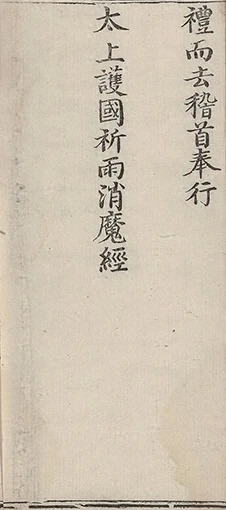 禮而去稽首奉行
太上護國祈雨消魔經